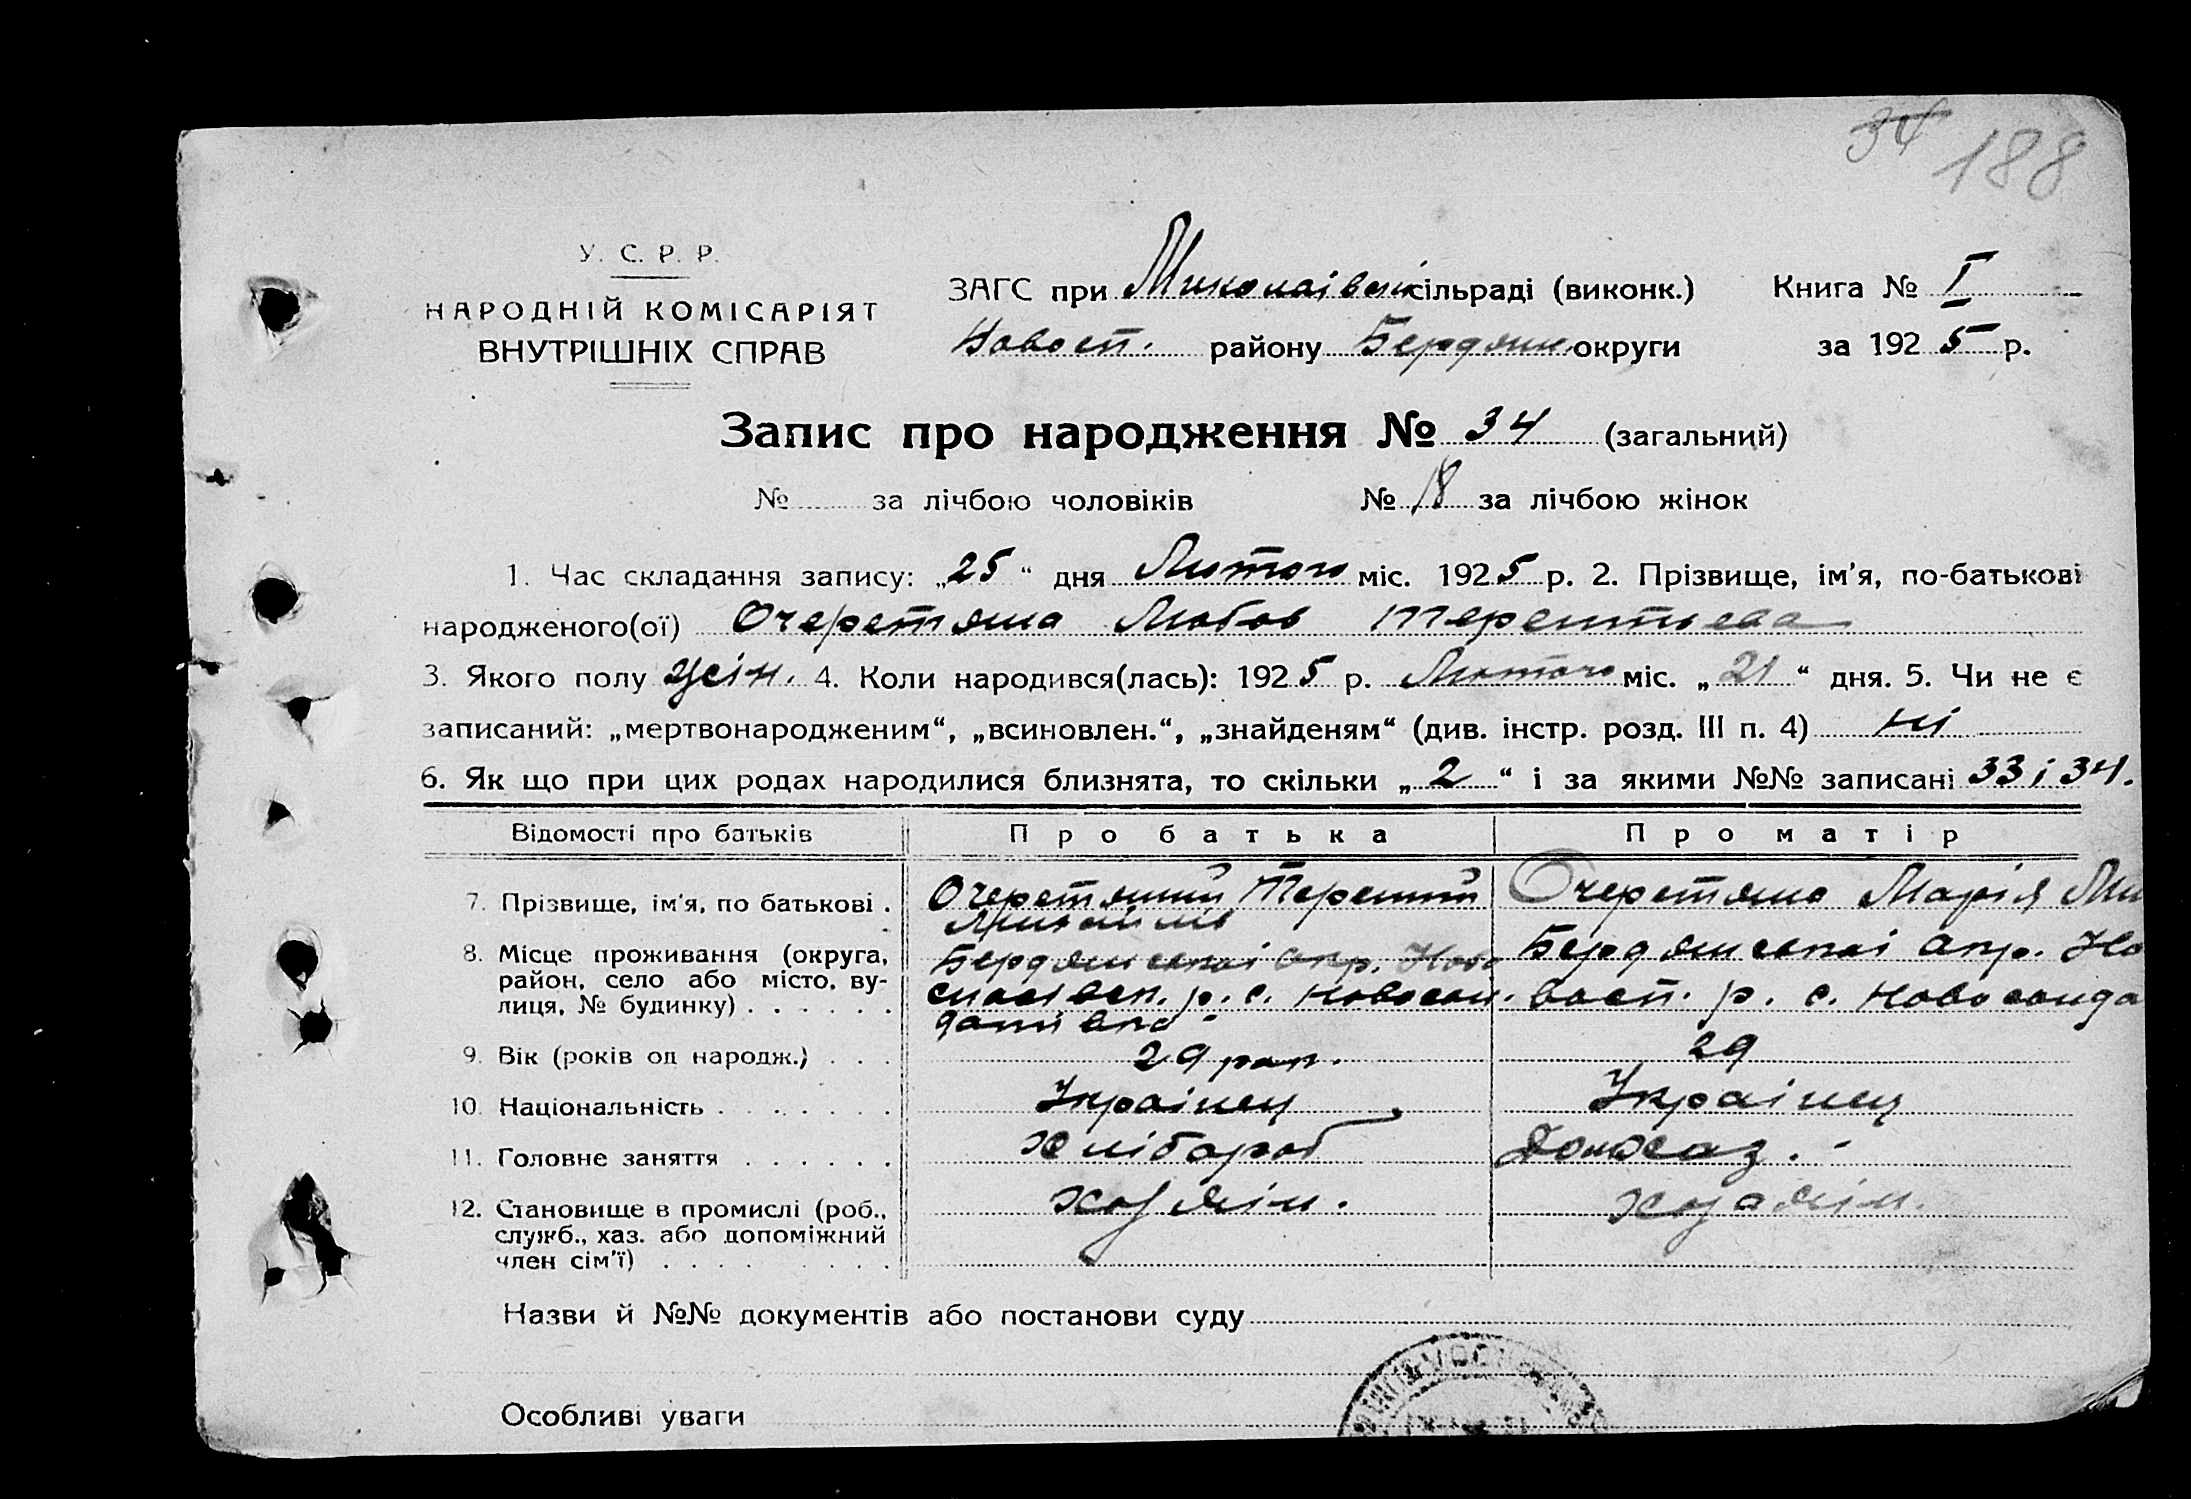 34 188
У. С. Р. Р.
НАРОДНІЙ КОМІСАРІЯТ
ВНУТРІШНІХ СПРАВ
ЗАГС при Миколаівській сільраді (виконк.) Книга № I
Новосп. району Бердянс. округи за 1925 р.
Запис про народження № 34 (загальний)
№ за лічбою чоловіків № 18 за лічбою жінок
1. Час складання запису: „25“ дня Лютого міс. 1925 р. 2. Прізвище, ім'я, по-батькові
народженого(ої) Очеретяна Любов Терентьева
3. Якого полу жін. 4. Коли народився(лась): 1925 р. Лютого міс. „21“ дня. 5. Чи не є
записаний: „мертвонародженим“, „всиновлен.“, „знайденям“ (див. інстр. розд. III п. 4) ні
6. Як що при цих родах народилися близнята, то скільки „2“ і за якими №№ записані 33 і 34.
Відомості про батьків Про батька Про матір
7. Прізвище, ім'я, по батькові . Очеретяний Терентій Очеретяна Марія Ми
8. Місце проживання (округа, Бердянськоі окр. Ново Бердянськоі окр. Но
район, село або місто, ву- р. с. Новосол. восп. р. с. Новосолда
лиця, № будинку) . . . . . .
9. Вік (років од народж.) . . . 29 рок. 29
10. Національність . . . . . . . Украінец Украінец
11. Головне заняття . . . . . . Хлібороб Домхаз.
12. Становище в промислі (роб., хозяін. хозаяін.
служб., хаз. або допоміжний
член сім'ї) . . . . . . . . .
Назви й №№ документів або постанови суду
Особливі уваги